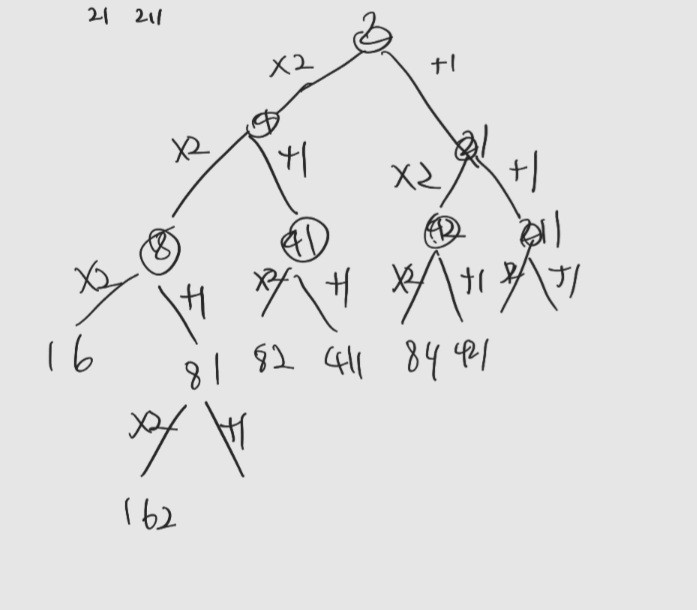 21 211
2
x2 +1
4 21
x2 +1 x2 +1
8 41 42 211
x2 +1 x2 +1 x2 +1 x2 +1
16 81 82 411 84 421
x2 +1
162